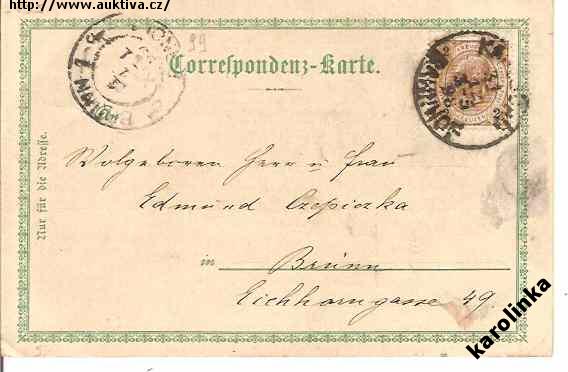 http://www.auktiva.cz/
99
Correspondenz-Karte.
BRÜNN
Nur für die Adresse.
Wolgeboren Herr u Frau
Edmund Czepiczka
in Brünn
Eichhorngasse 49.
karolinka